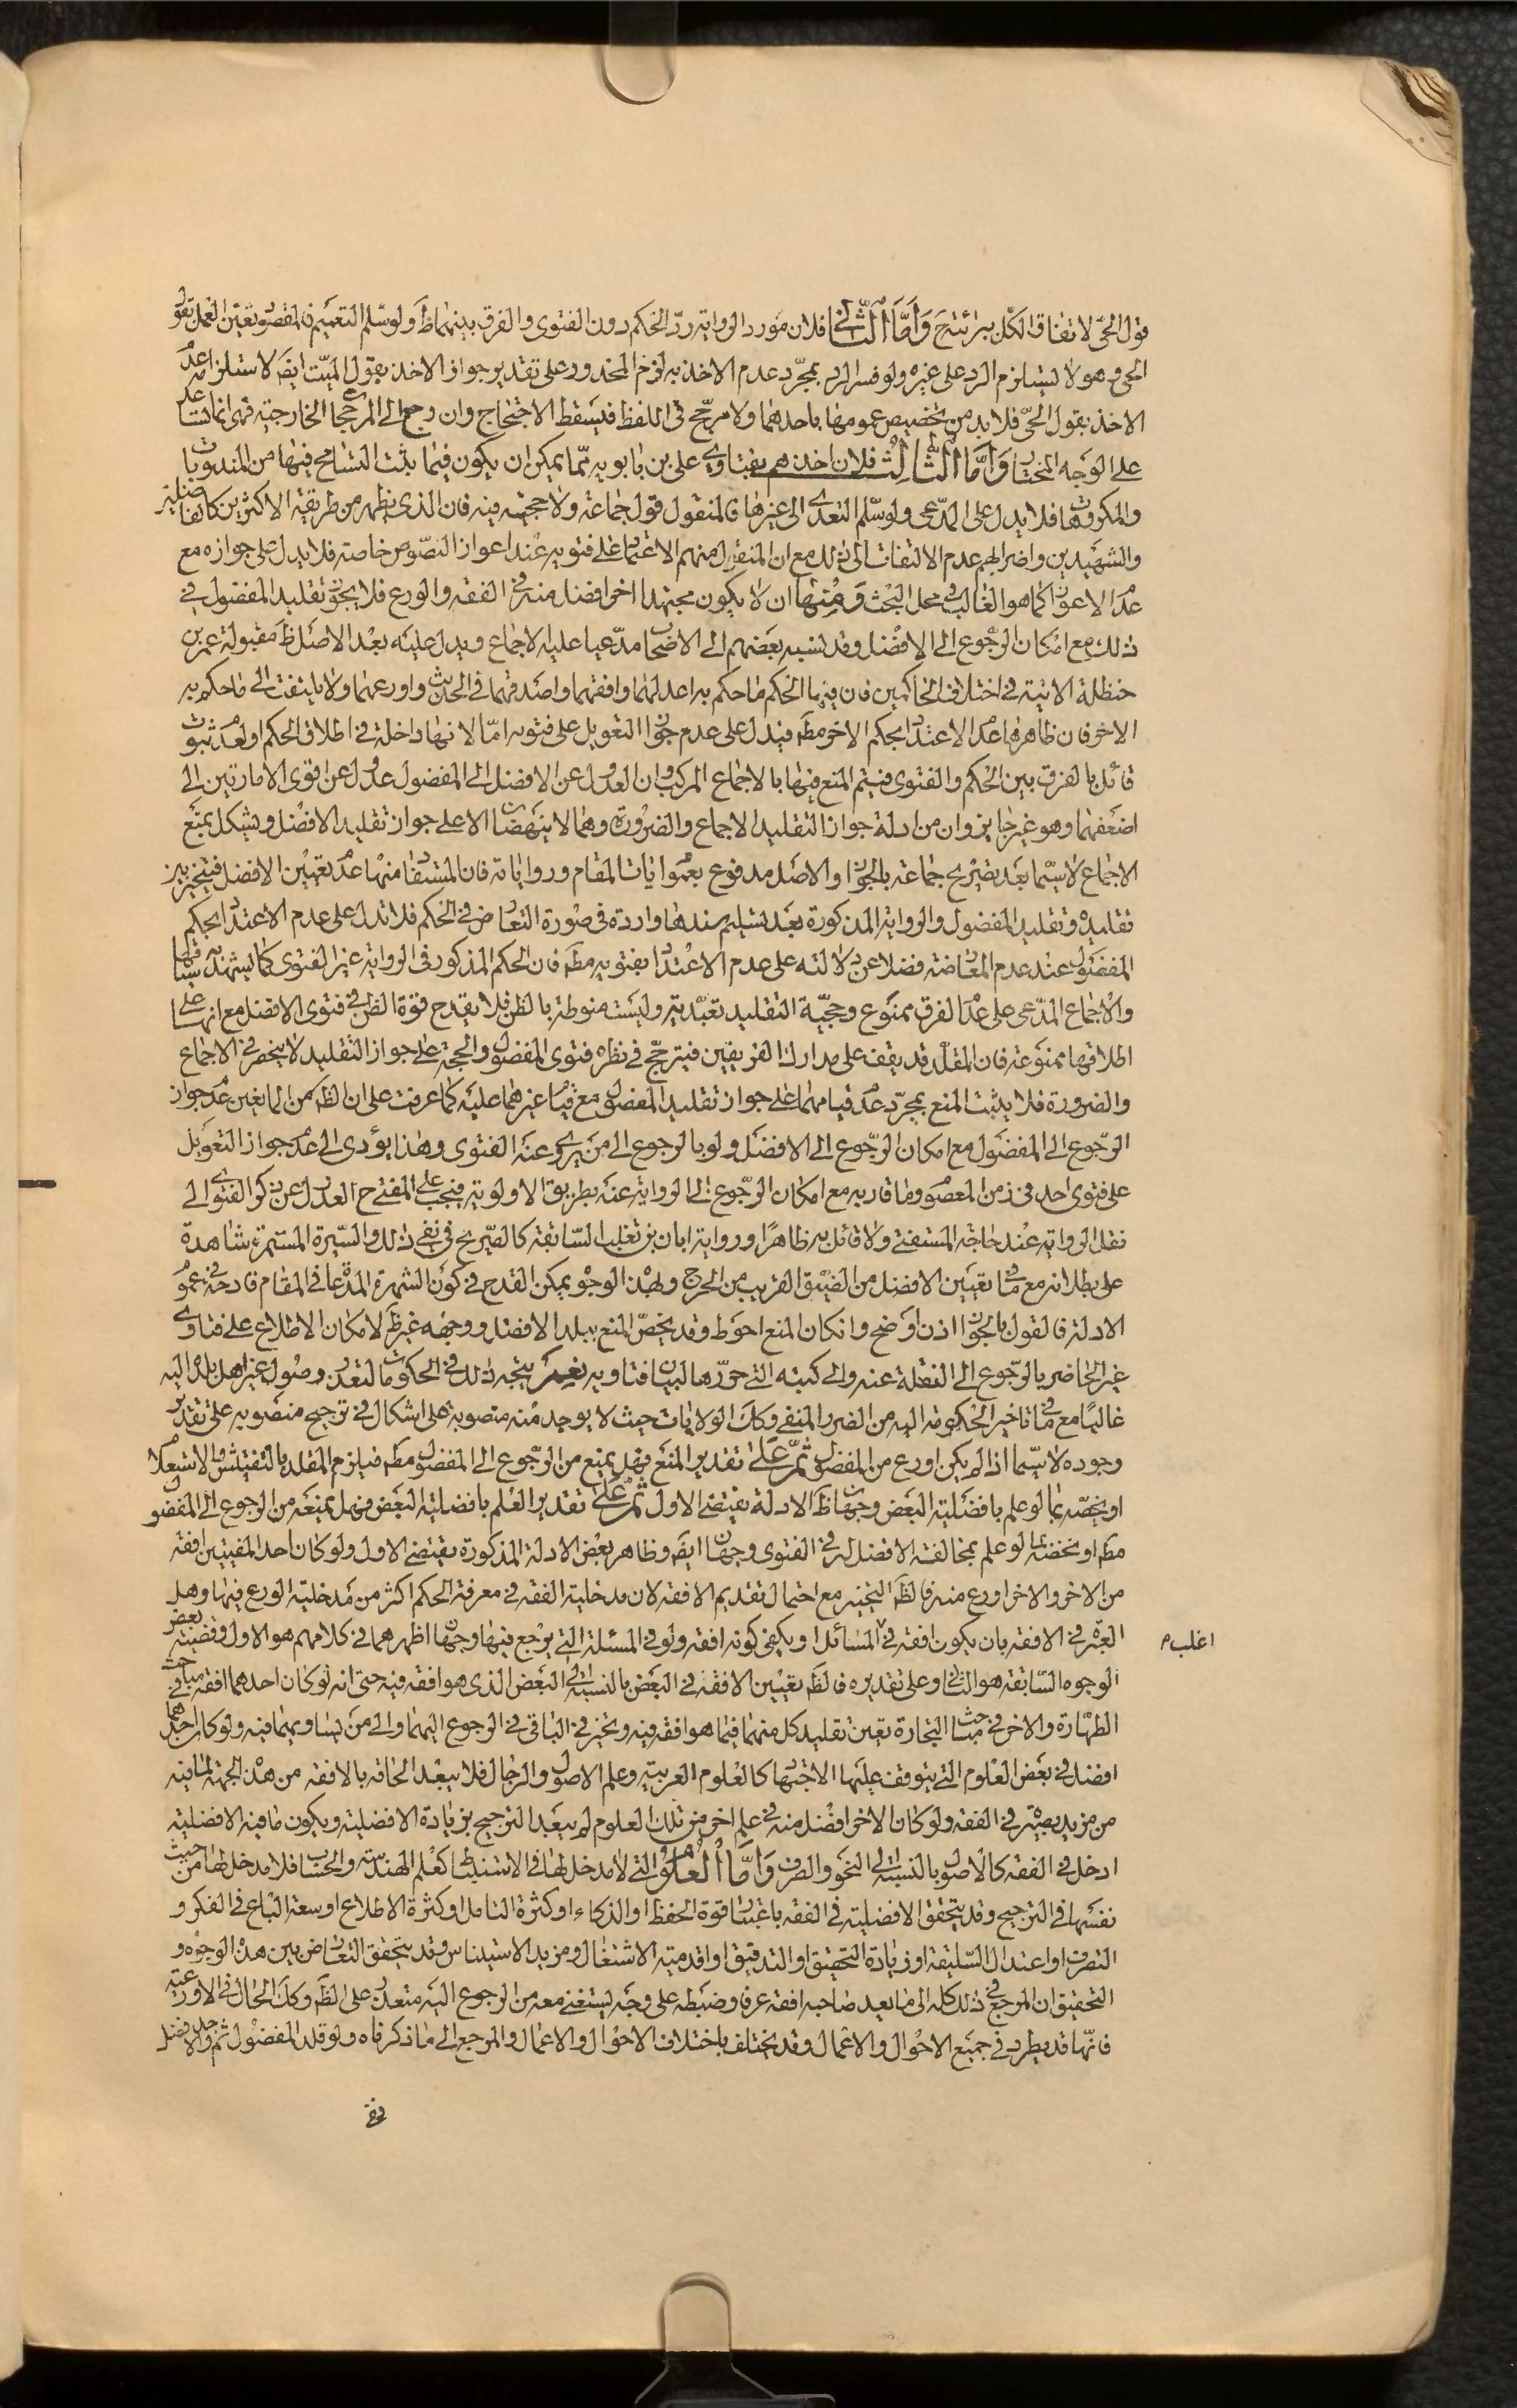 قول الحىّ لاتفاق الكل ببرائتيح وَأمّا الثّاني فلان مورد الرواية ردّ الحكم دون الفتوى والفرق بينهما ظَ ولو سلّم التعميم فالمقصو تعيّن العمل بقول
الحى وهو لا يستلزم الرد على غيره ولو فسر الرد بمجرّد عدم الاخذ به لزم المحذور على تقدير جواز الاخذ بقول الميّت ايضَ لاستلزامه عدم
الاخذ بقول الحىّ فلا بد من تخصيص عمومها باحدهما ولا مرجّح فى اللفظ فيسقط الاحتجاج وان رجع الى المرجحات الخارجيّة فهى انما تساعد
على الوجه المختار وَأمّا الثّالِثْ فلان اخذهم بفتاوى على بن بابويه ممّا يمكن ان يكون فيما يثبت التسامح فيها من المندوبات
والمكروهات فلا يدل على المدّعى ولو سلّم التعدى الى غيرها فالمنقول قول جماعة ولا حجّية فيه فان الذى يظهر من طريقة الاكثرين كالفاضلين
والشهيدين واضرابهم عدم الالتفات الى ذلك مع ان المنقول منهم الاعتماد على فتويه عند اعواز النصّوص خاصة فلا يدل على جوازه مع
عدم الاعواز كما هو الغالب فى محل البحث وَمِنْها ان لا يكون مجتهدا اخر افضل منه فى الفقه والورع فلا يجوز تقليد المفضول فى
ذلك مع امكان الرّجوع الى الافضل وقد نسبه بعضهم الى الاصحاب مدّعيا عليه الاجماع ويدل عليه بعد الاصل ظَ مقبولة عمر بن
حنظلة الاتية فى اختلاف الحاكمين فان فيها الحكم ما حكم به اعدلهما وافقههما واصدقهما فى الحديث واورعهما ولا يلتفت الى ما حكم به
الاخر فان ظاهرها عدم الاعتداد بحكم الاخر مطَ فيدل على عدم جواز التعويل على فتويه امّا لانها داخلة فى اطلاق الحكم او لعدم ثبوت
قائل بالفرق بين الحكم والفتوى فيتم المنع فيها بالاجماع المركب وان العدول عن الافضل الى المفضول عدول عن اقوى الامارتين الى
اضعفهما وهو غير جايز وان من ادلة جواز التقليد الاجماع والضرورة وهما لا ينهضان الا على جواز تقليد الافضل ويشكل بمنع
الاجماع لا سيّما بعد تصريح جماعة بالجواز والاصل مدفوع بعموم ايات المقام ورواياته فان المستفاد منها عدم تعيين الافضل فيتخير بين
تقليده وتقليد المفضول والرواية المذكورة بعد تسليم سندها واردة فى صورة التعارض فى الحكم فلا تدل على عدم الاعتداد بحكم
المفضول عند عدم المعارضة فضلا عن دلالته على عدم الاعتداد بفتويه مطَ فان الحكم المذكور فى الرواية غير الفتوى كما يشهد به سياقها
والاجماع المدّعى على عدم الفرق ممنوع وحجيّة التقليد تعبّدية وليست منوطة بالظن فلا يقدح قوة الظن فى فتوى الافضل مع انها على
اطلاقها ممنوعة فان المقلّد قد يقف على مدارك الفريقين فيترجّح فى نظره فتوى المفضول والحجة على جواز التقليد لا ينحصر فى الاجماع
والضرورة فلا يثبت المنع بمجرّد عدم قيامهما على جواز تقليد المفضول مع قيام غيرهما عليه كما عرفت على ان الظَ من المانعين عدم جواز
الرّجوع الى المفضول مع امكان الرّجوع الى الافضل ولو بالرجوع الى من يروى عنه الفتوى وهذا يؤدى الى عدم جواز التعويل
على فتوى احد فى زمن المعصوم وما قاربه مع امكان الرّجوع الى الرواية عنه بطريق الاولوية فيجب على المفتى ح العدول عن ذكر الفتوى الى
نقل الرواية عند حاجة المستفتى ولا قائل به ظاهرا ورواية ابان بن تغلب السّابقة كالصّريح فى نفى ذلك والسّيرة المستمرة شاهدة
على بطلانه مع ما فى تعيين الافضل من الضيق القريب من الحرج وبهذه الوجوه يمكن القدح فى كون الشهرة المدّعاة فى المقام قادحة فى عموم
الادلة فالقول بالجواز اذن اوضح وان كان المنع احوط وقد يخصّ المنع ببلد الافضل ووجهه غير ظَ لامكان الاطلاع على فتاوى
غير الحاضر بالرّجوع الى النقلة عنه والى كتبه التى حرّرها لبيان فتاويه نعم يتجه ذلك فى الحكومات لتعذر وصول غير اهل بلده اليه
غالبًا مع ما فى تاخير الحكومة اليه من الضرر المنفى وكك الولايات حيث لا يوجد منه منصوبه على اشكال فى ترجيح منصوبه على تقدير
وجوده لا سيّما اذا لم يكن اورع من المفضول ثمّ عَلى تقدير المنع فهل يمنع من الرّجوع الى المفضول مطَ فيلزم المقلد بالتفتيش والاستعلام
او يخصّه بما لو علم بافضلية البعض وجهان ظَ الادلة يقتضى الاول ثمّ عَلى تقدير العلم بافضلية البعض فهل يمنعه من الرجوع الى المفضول
مطَ او يخصّه بما لو علم بمخالفة الافضل له فى الفتوى وجهان ايضَ وظاهر بعض الادلة المذكورة يقتضى الاول ولو كان احد المفتيين افقه
من الاخر والاخر اورع منه فالظَ التخيير مع احتمال تقديم الافقه لان مدخلية الفقه فى معرفة الحكم اكثر من مدخلية الورع فيها وهل
العبرة فى الافقه بان يكون افقه فى المسائل او يكفى كونه افقه ولو فى المسئلة التى يرجع فيها وجهان اظهرهما فى كلامهم هو الاول وقضية بعض
اغلب م
الوجوه السّابقة هو الثانى وعلى تقديره فالظَ تعيين الافقه فى البعض بالنسبة الى البعض الذى هو افقه فيه حتى انه لو كان احدهما افقه فى مباحث
الطهارة والاخر فى مباحث التجارة تعين تقليد كل منهما فيما هو افقه فيه وتخير فى الباقى فى الرجوع اليهما والى من يساويهما فيه ولو كان احدهما
افضل فى بعض العلوم التى يتوقف عليها الاجتهاد كالعلوم العربية وعلم الاصول والرجال فلا يبعد الحاقه بالافقه من هذه الجهة لما فيه
من مزيد بصيرة فى الفقه ولو كان الاخر افضل منه فى علم اخر من تلك العلوم لم يبعد الترجيح بزيادة الافضلية وبكون ما فيه الافضلية
ادخل فى الفقه كالاصول بالنسبة الى النحو والصرف وَامّا العُلوم التى لا مدخل لها فى الاستنباط كعلم الهندسة والحساب فلا مدخل لها من حيث
نفسها فى الترجيح وقد يتحقق الافضلية فى الفقه باعتبار قوة الحفظ او الذكاء او كثرة التامل او كثرة الاطلاع او سعة الباع فى الفكر و
التصرف او اعتدال السّليقة او زيادة التحقيق او التدقيق او اقدمية الاشتغال ومزيد الاستيناس وقد يتحقق التعارض بين هذه الوجوه و
التحقيق ان المرجع فى ذلك كله الى ما يعد صاحبه افقه عرفا وضبطه على وجه يستغنى معه من الرجوع اليه متعذر على الظَ وكك الحال فى الاورعية
فانّها قد يطرد فى جميع الاحوال والاعمال وقد يختلف باختلاف الاحوال والاعمال والمرجع الى ما ذكرناه ولو قلد المفضول ثم وجد الافضل